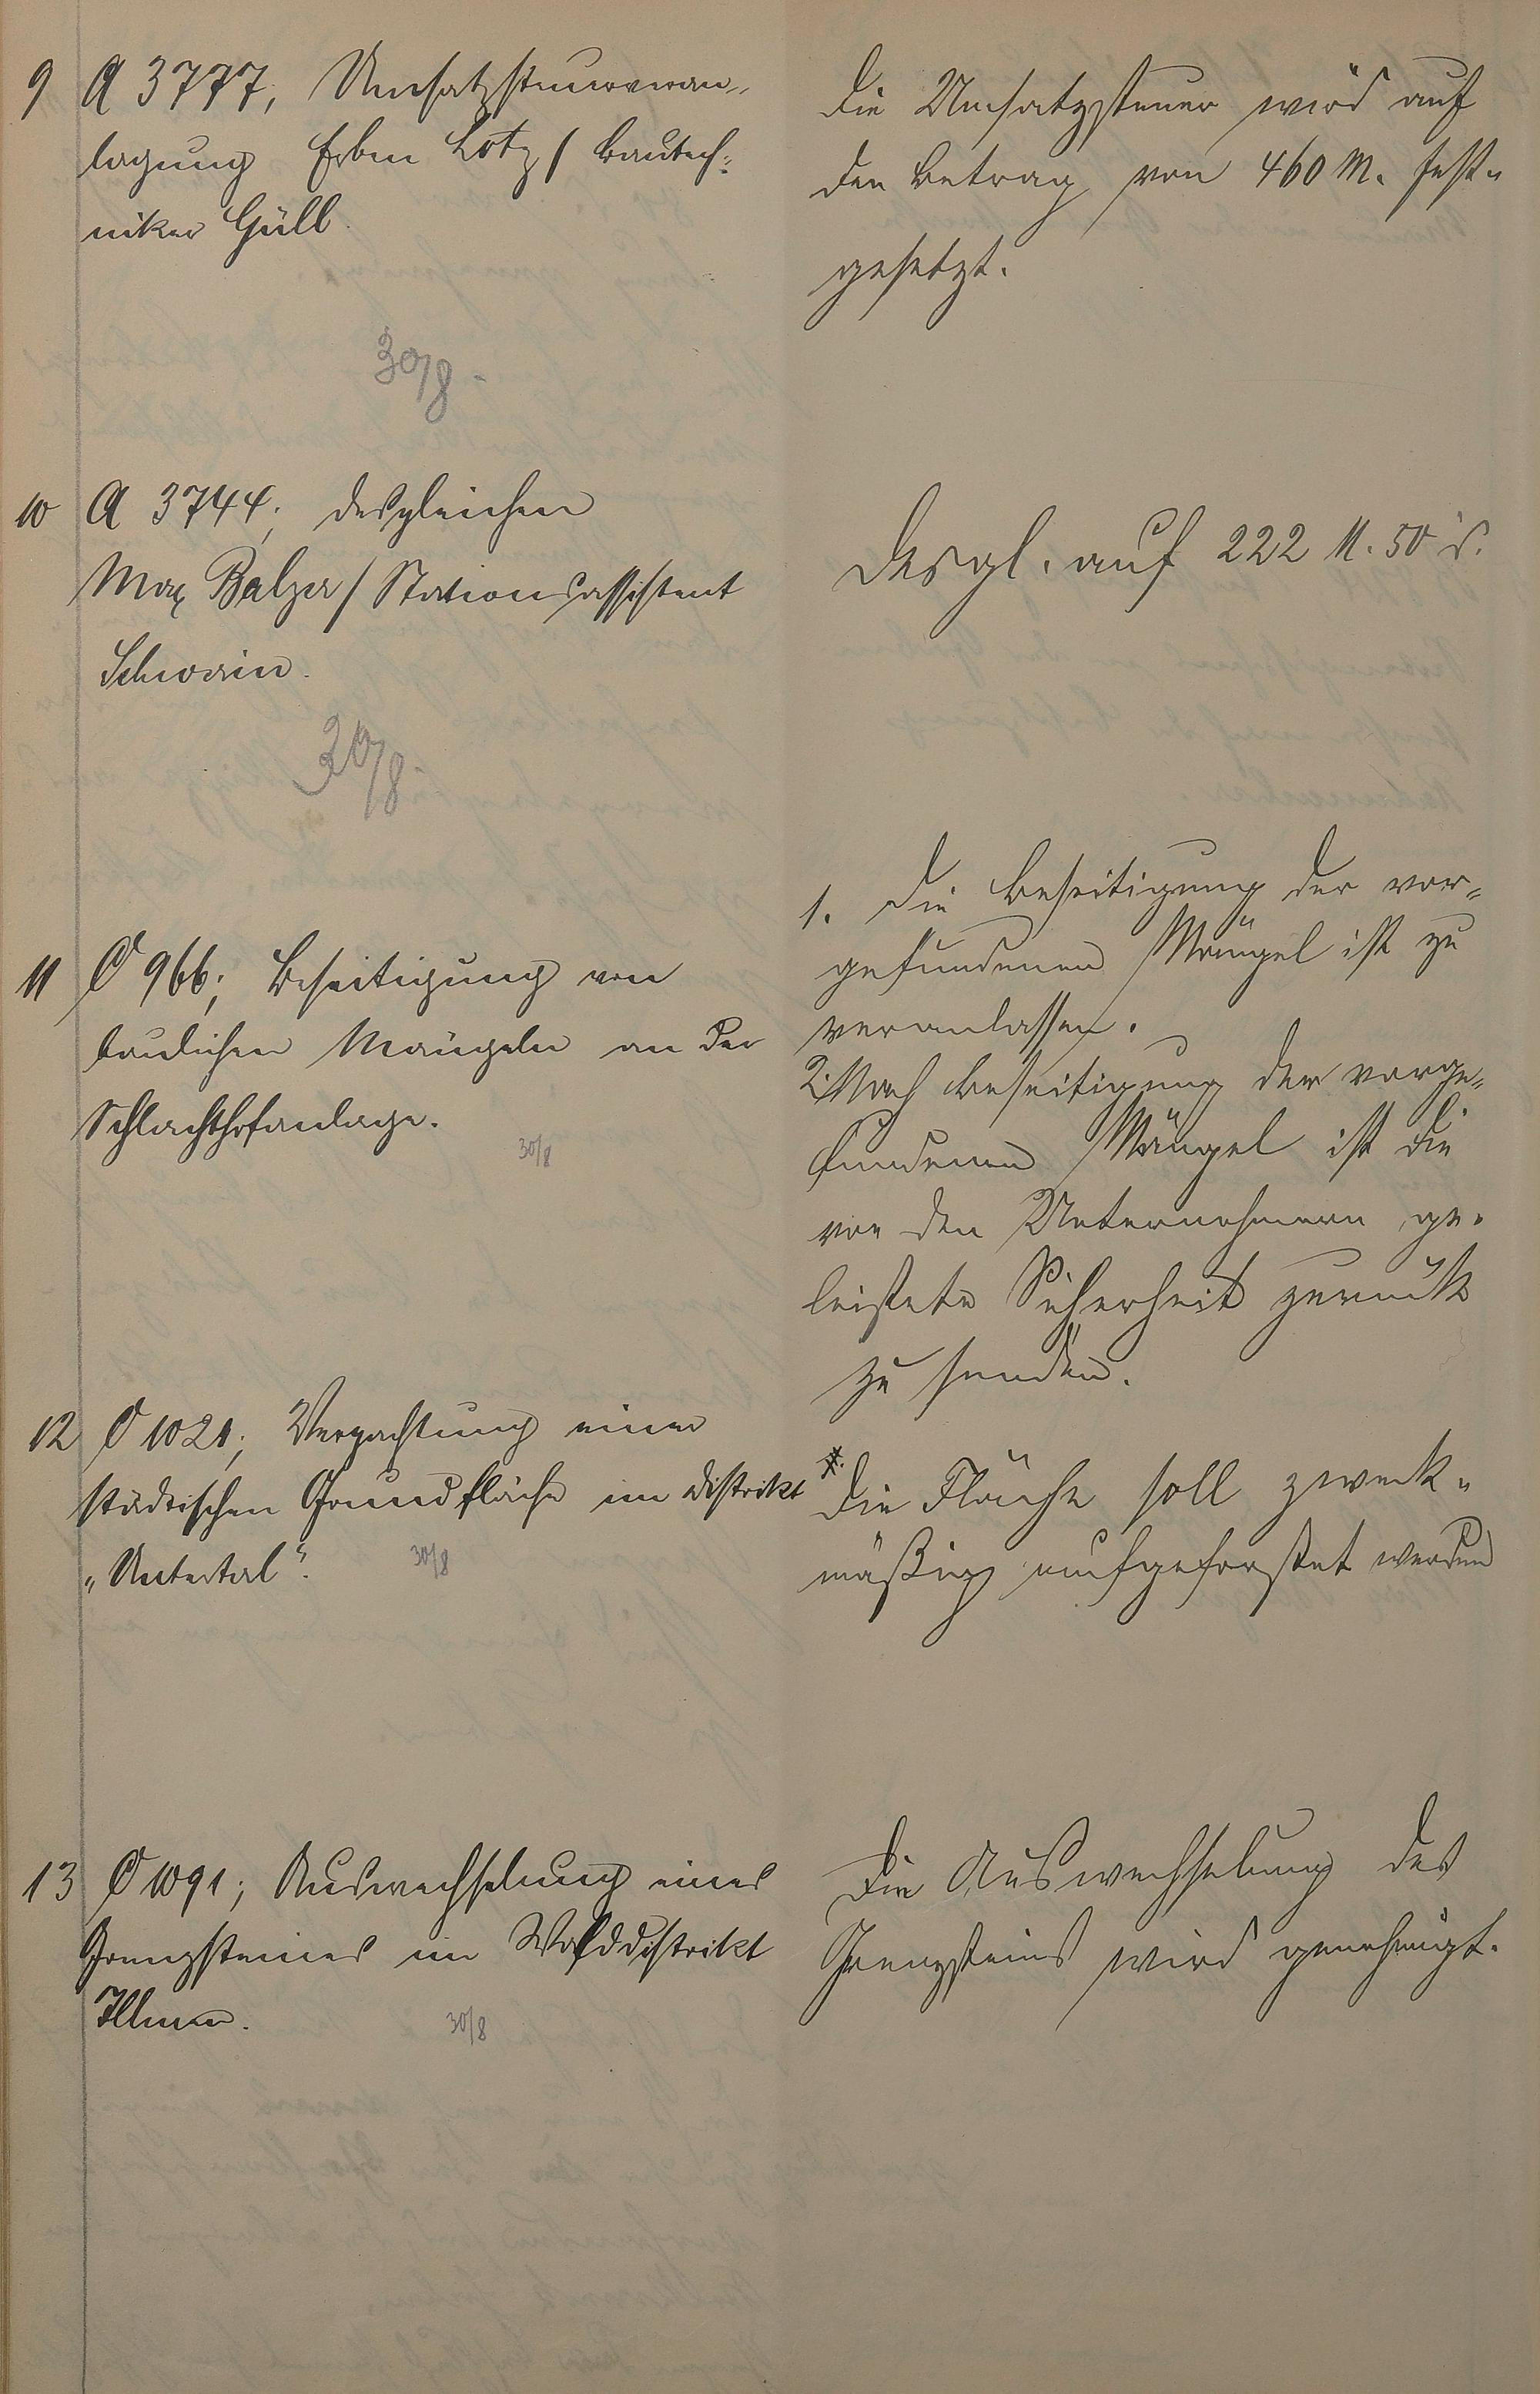 9 A 3777, Umsatzsteuerveran-
lagung Erben Lotz / Bautech-
niker Güll.
30/8.
Die Umsatzsteuer wird auf
den Betrag von 460 M. fest-
gesetzt.
10 A 3744; desgleichen
Max Balzer / Stationsassistent
Schwerin.
30/8.
Desgl. auf 222 M. 50 d.
11 C 966; Beseitigung von
baulichen Mängeln an der
Schlachthofanlage.
30/8
1. Die Beseitigung der vor-
gefundenen Mängel ist zu
veranlassen.
2. Nach Beseitigung der vorge-
fundenen Mängel ist die
von den Unternehmern ge-
leistete Sicherheit zurück
zu senden.
12 C 1021; Verpachtung einer
städtischen Grundfläche im Distrikt
„Untertal“.
30/8
Die Fläche soll zweck-
mäßig aufgeforstet werden
13 C 1091; Auswechselung eines
Grenzsteines im Walddistrikt
30/8
Die Auswechselung des
Grenzsteins wird genehmigt.